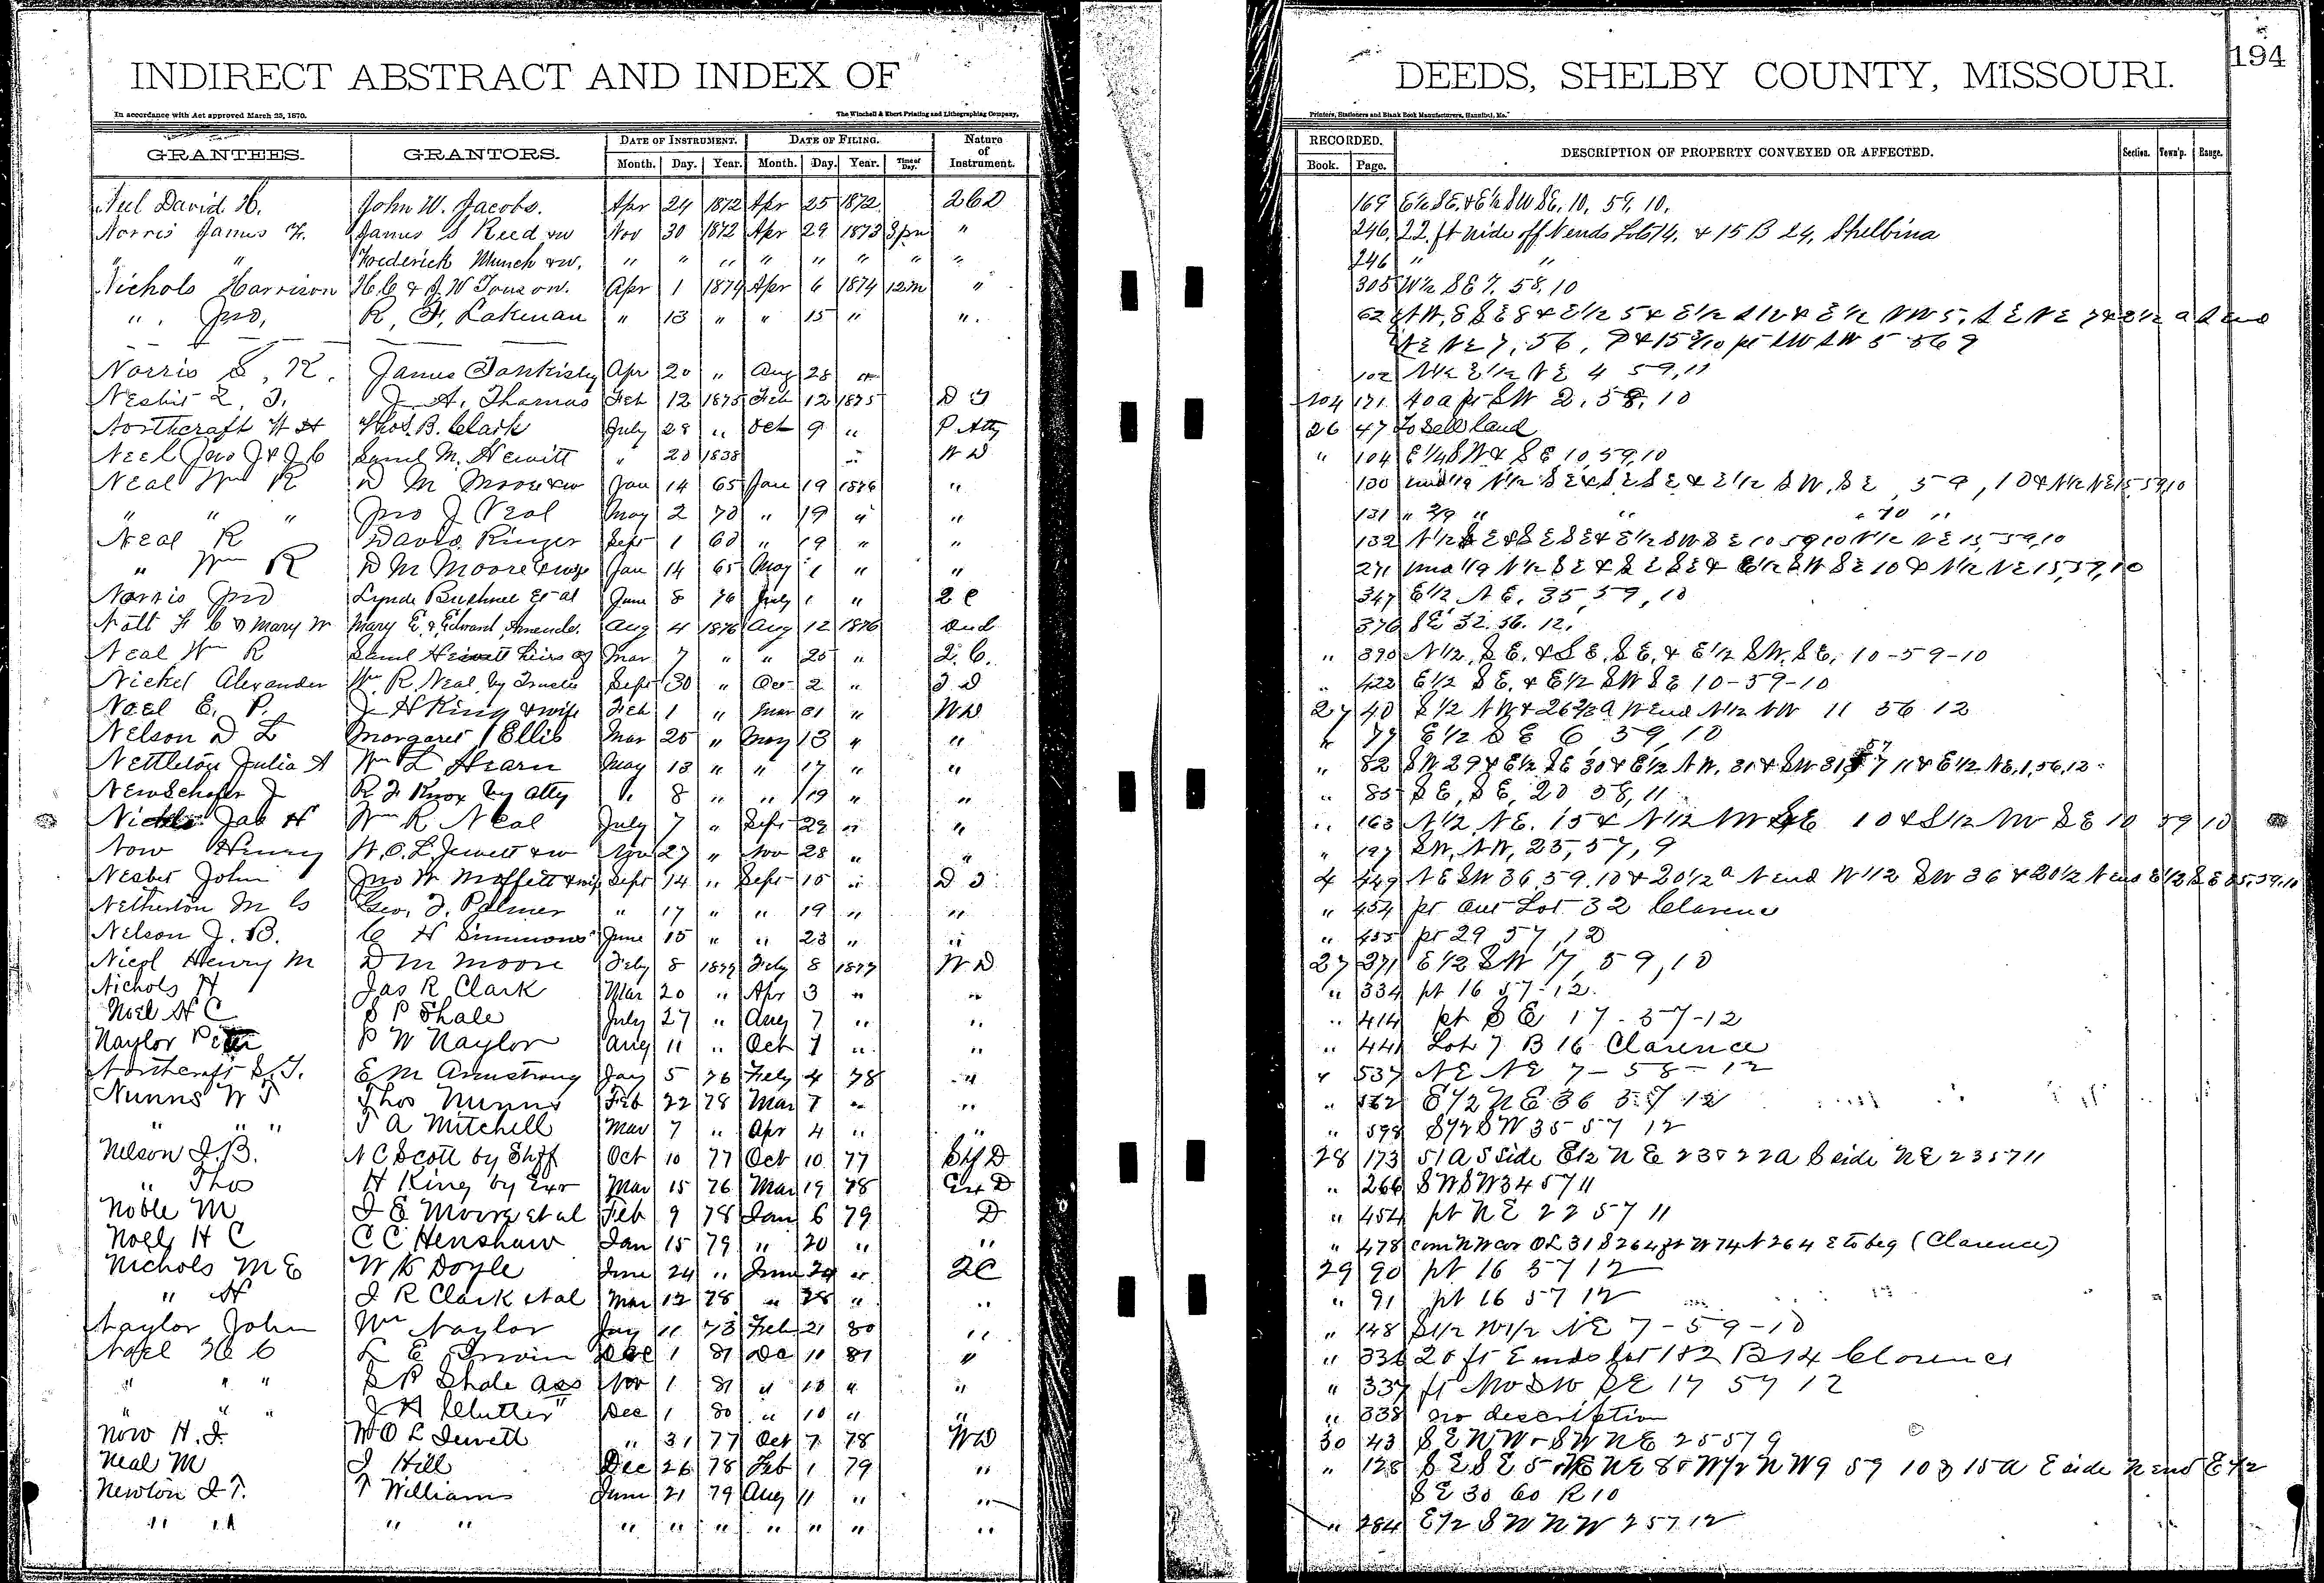 INDIRECT ABSTRACT AND INDEX OF DEEDS, SHELBY COUNTY, MISSOURI. 194
In accordance with Act approved March 25, 1870. The Winchell & Ebert Printing and Lithographing Company, Printers, Stationers and Blank Book Manufacturers, Hannibal, Mo.
GRANTEES. GRANTORS. DATE OF INSTRUMENT. DATE OF FILING. Nature of Instrument. RECORDED. DESCRIPTION OF PROPERTY CONVEYED OR AFFECTED. Section. Town'p. Range.
Month. Day. Year. Month. Day. Year. Time of Day. Book. Page.
David H. John W. Jacobs. Apr 24 1872 Apr 25 1872 169 E½ SE. & E½ SW SE. 10, 59, 10.
Norris James F. James S Reed & w Nov 30 1872 Apr 29 1873 3pm " 246. 22 ft side off N ends Lots 14, & 15 B 24, Shelbina
" " Frederick Munch & w. " " " " " " " " 246 " "
Nichols Harrison H C & J. W Touson. Apr 1 1874 Apr 6 1874 12m " 305 W½ SE 7. 58, 10
" . Jno, R. F. Lakenan " 13 " " 15 " ". 62
NE NE 7, 56, 9 & 15 pt SW SW 5 56 9
Norris S, K. James Apr 20 " Aug 28 " 102 E½ NE 4 59, 11
Nesbit J. A. Thomas Feb 12 1875 Feb 12 1875 D T 171 40a pt SW 2, 58, 10
Northcraft H H Thos. B. Clark July 28 " Oct 9 " P Atty 26 47 To Sell Land
Neel Jno J & J C Saml M. Hewitt " 20 1838 W D " 104 SW & SE 10, 59, 10
Neal Wm R D M Moore & w Jan 14 65 Jan 19 1876 " 130 und 1/9 N½ SE & SE SE & E½ SW, SE, 59, 10 & N½ NE 15, 59, 10
" " " Jno J Neal May 2 70 " 19 " " 131 " 2/9 " " " 10 "
Neal R David Ringer Sept 1 60 " 19 " " 132 N½ SE & SE SE & E½ SW SE 10 59 10 N½ NE 15, 59, 10
" Wm R D M Moore & wife Jan 14 65 May 1 " " 271 und 1/9 N½ SE & SE SE & E½ SW SE 10 & N½ NE 15, 59, 10
Norris Jno Lynde Bushnell Et al June 8 76 July 1 " 2 C 347 E½ NE. 35, 59, 10
Nott F C & Mary W Mary E. & Edward Aug 4 1876 Aug 12 1876 376 SE 32. 56. 12.
Neal Wm R Saml Hewitt heirs of Mar 7 " " 25 " 2. C. " 390 N½, SE. & SE, SE, & E½ SW, SE, 10-59-10
Nickel Alexander Wm. R. Neal, by Trustee Sept 30 " Oct 2 " T D " 422 E½ SE. & E½ SW SE 10-59-10
Noel E. P. J H King & wife Feb 1 " Mar 31 " WD 27 40 S½ NW & 26⅔ a W end N½ NW 11 56 12
Nelson D L Margaret Ellis Mar 25 " May 13 " " " 79 E½ SE 6, 59, 10
Nettleton Julia A Wm L Hearn May 13 " " 17 " " " 82 SW 29 & E½ SE 30 & E½ NW, 31 & SW 31 57 11 & E½ NE, 1, 56, 12
Newschafer J R F Knox by Atty " 8 " " 19 " " " 85 SE, SE, 20 58, 11
Jas H Wm R Neal July 7 " Sept 29 " " " 163 N½ NE. 15 & 10 & S½ NW SE 10 59 10
Now Henry W. O. L. Jewett & w Nov 27 " Nov 28 " " " 197 SW, NW, 25, 57, 9
Nesbit John Jno W Moffett & wife Sept 14 " Sept 15 " D T 4 449 NE SW 36, 59, 10 & 20½ a N end W½ SW 36 & 20½ N end E½ SE 35, 59, 10
Netherton M C Geo. F. Palmer " 17 " " 19 " " " 454 pt Out Lot 32 Clarence
Nelson J. B. C H Simmons June 15 " " 23 " " " 455 pt 29 57, 12
Nicol Henry M D M Moore Feby 8 1877 Feby 8 1877 W D 27 271 E½ SW 17, 59, 10
Nichols H Jas R Clark Mar 20 " Apr 3 " " " 334 pt 16 57-12.
Noel H C S P Shale July 27 " Aug 7 " " " 414 pt SE 17-57-12
Naylor Peter P W Naylor Aug 11 " Oct 1 " " " 441 Lot 7 B 16 Clarence
Northcraft S. T. E M Armstrong Jay 5 76 Feby 4 78 " " 537 NE NE 7-58-12
Nunns W T Thos Nunns Feb 22 78 Mar 7 " " " 562 E½ NE 36 57 12
" " " T A Mitchell Mar 7 " Apr 4 " " " 598 S½ SW 35-57 12
Nelson J. B. N C Scott by Shff Oct 10 77 Oct 10 77 Sh D 28 173 51 A S side E½ NE 23 & 22a S side NE 23 57 11
" Thos H King by Exr Mar 15 76 Mar 19 78 Ex D " 266 SW SW 34 57 11
Noble M J E Moore et al Feb 9 78 Jan 6 79 D " 454 pt NE 22 57 11
Noel H C C C Henshaw Jan 15 79 " 20 " " " 478 com NW cor OL 31 S 264 ft W 74 N 264 E to beg (Clarence)
Nichols M E W K Doyle June 24 " June 24 " 2C 29 90 pt 16 57 12
" H J R Clark et al Mar 12 78 " 28 " " " 91 pt 16 57 12
Naylor John Wm Naylor Jay 11 73 Feb 21 80 " " 148 S½ W½ NE 7-59-10
Noel H C L E Irwin Dec 1 81 Dec 10 81 " " 336 20 ft E ends lot 1 & 2 B 14 Clarence
" " " S P Shale Ass Nov 1 81 " 10 " " " 337 pt NW SW SE 17 57 12
" " " J H Clutter Dec 1 80 " 10 " " " 338 no description
Now H. J. W O L Jewett " 31 77 Oct 7 78 WD 30 43 SE NW - SW NE 25 57 9
Neal M J Hill Dec 26 78 Feb 1 79 " " 128 SE SE 5 NE NE 8 & W½ NW 9 59 10 & 15a E side N end E½
SE 30 60 R10
Newton J T. T Williams June 21 79 Aug 11 " "
" " " " " " " " " " " " 284 E½ SW NW 2 57 12